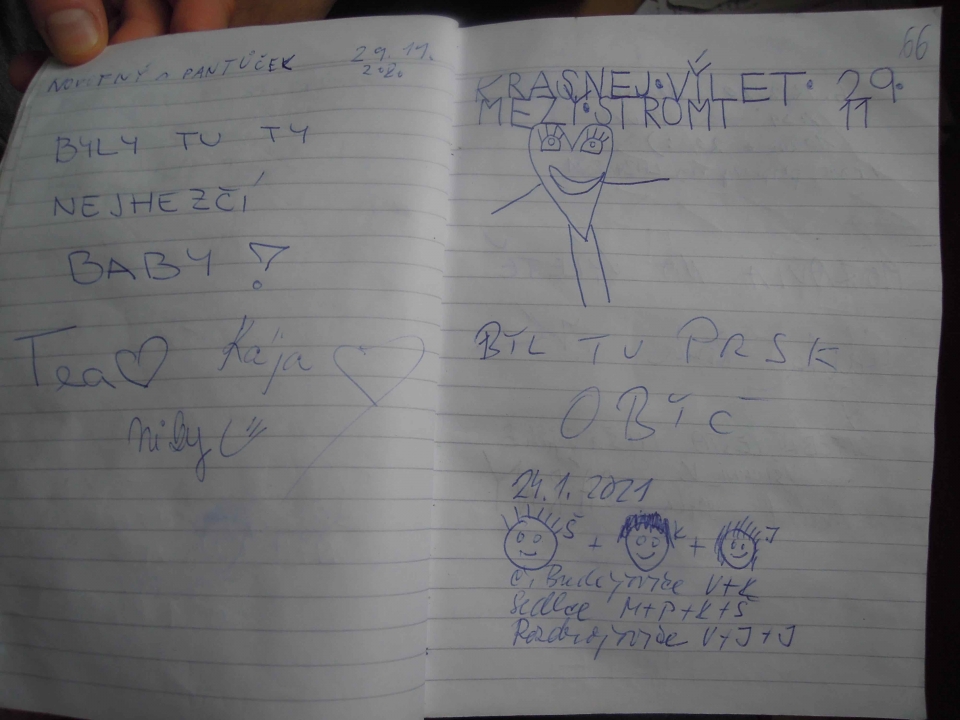 NOVOTNÝ A PANTŮČEK 29.11.
2.0.
BYLY TU TY
NEJHEZČÍ
BABY!
Tea Kája
niky
66
KRASNEJ VÝLET. 29.
MEZY STROMY 11
BYL TU PRSK
OBYČ
24.1. 2021
Š + K + J
Č. Budějovice V+K
Sedlce M+P+K+Š
V+J+J